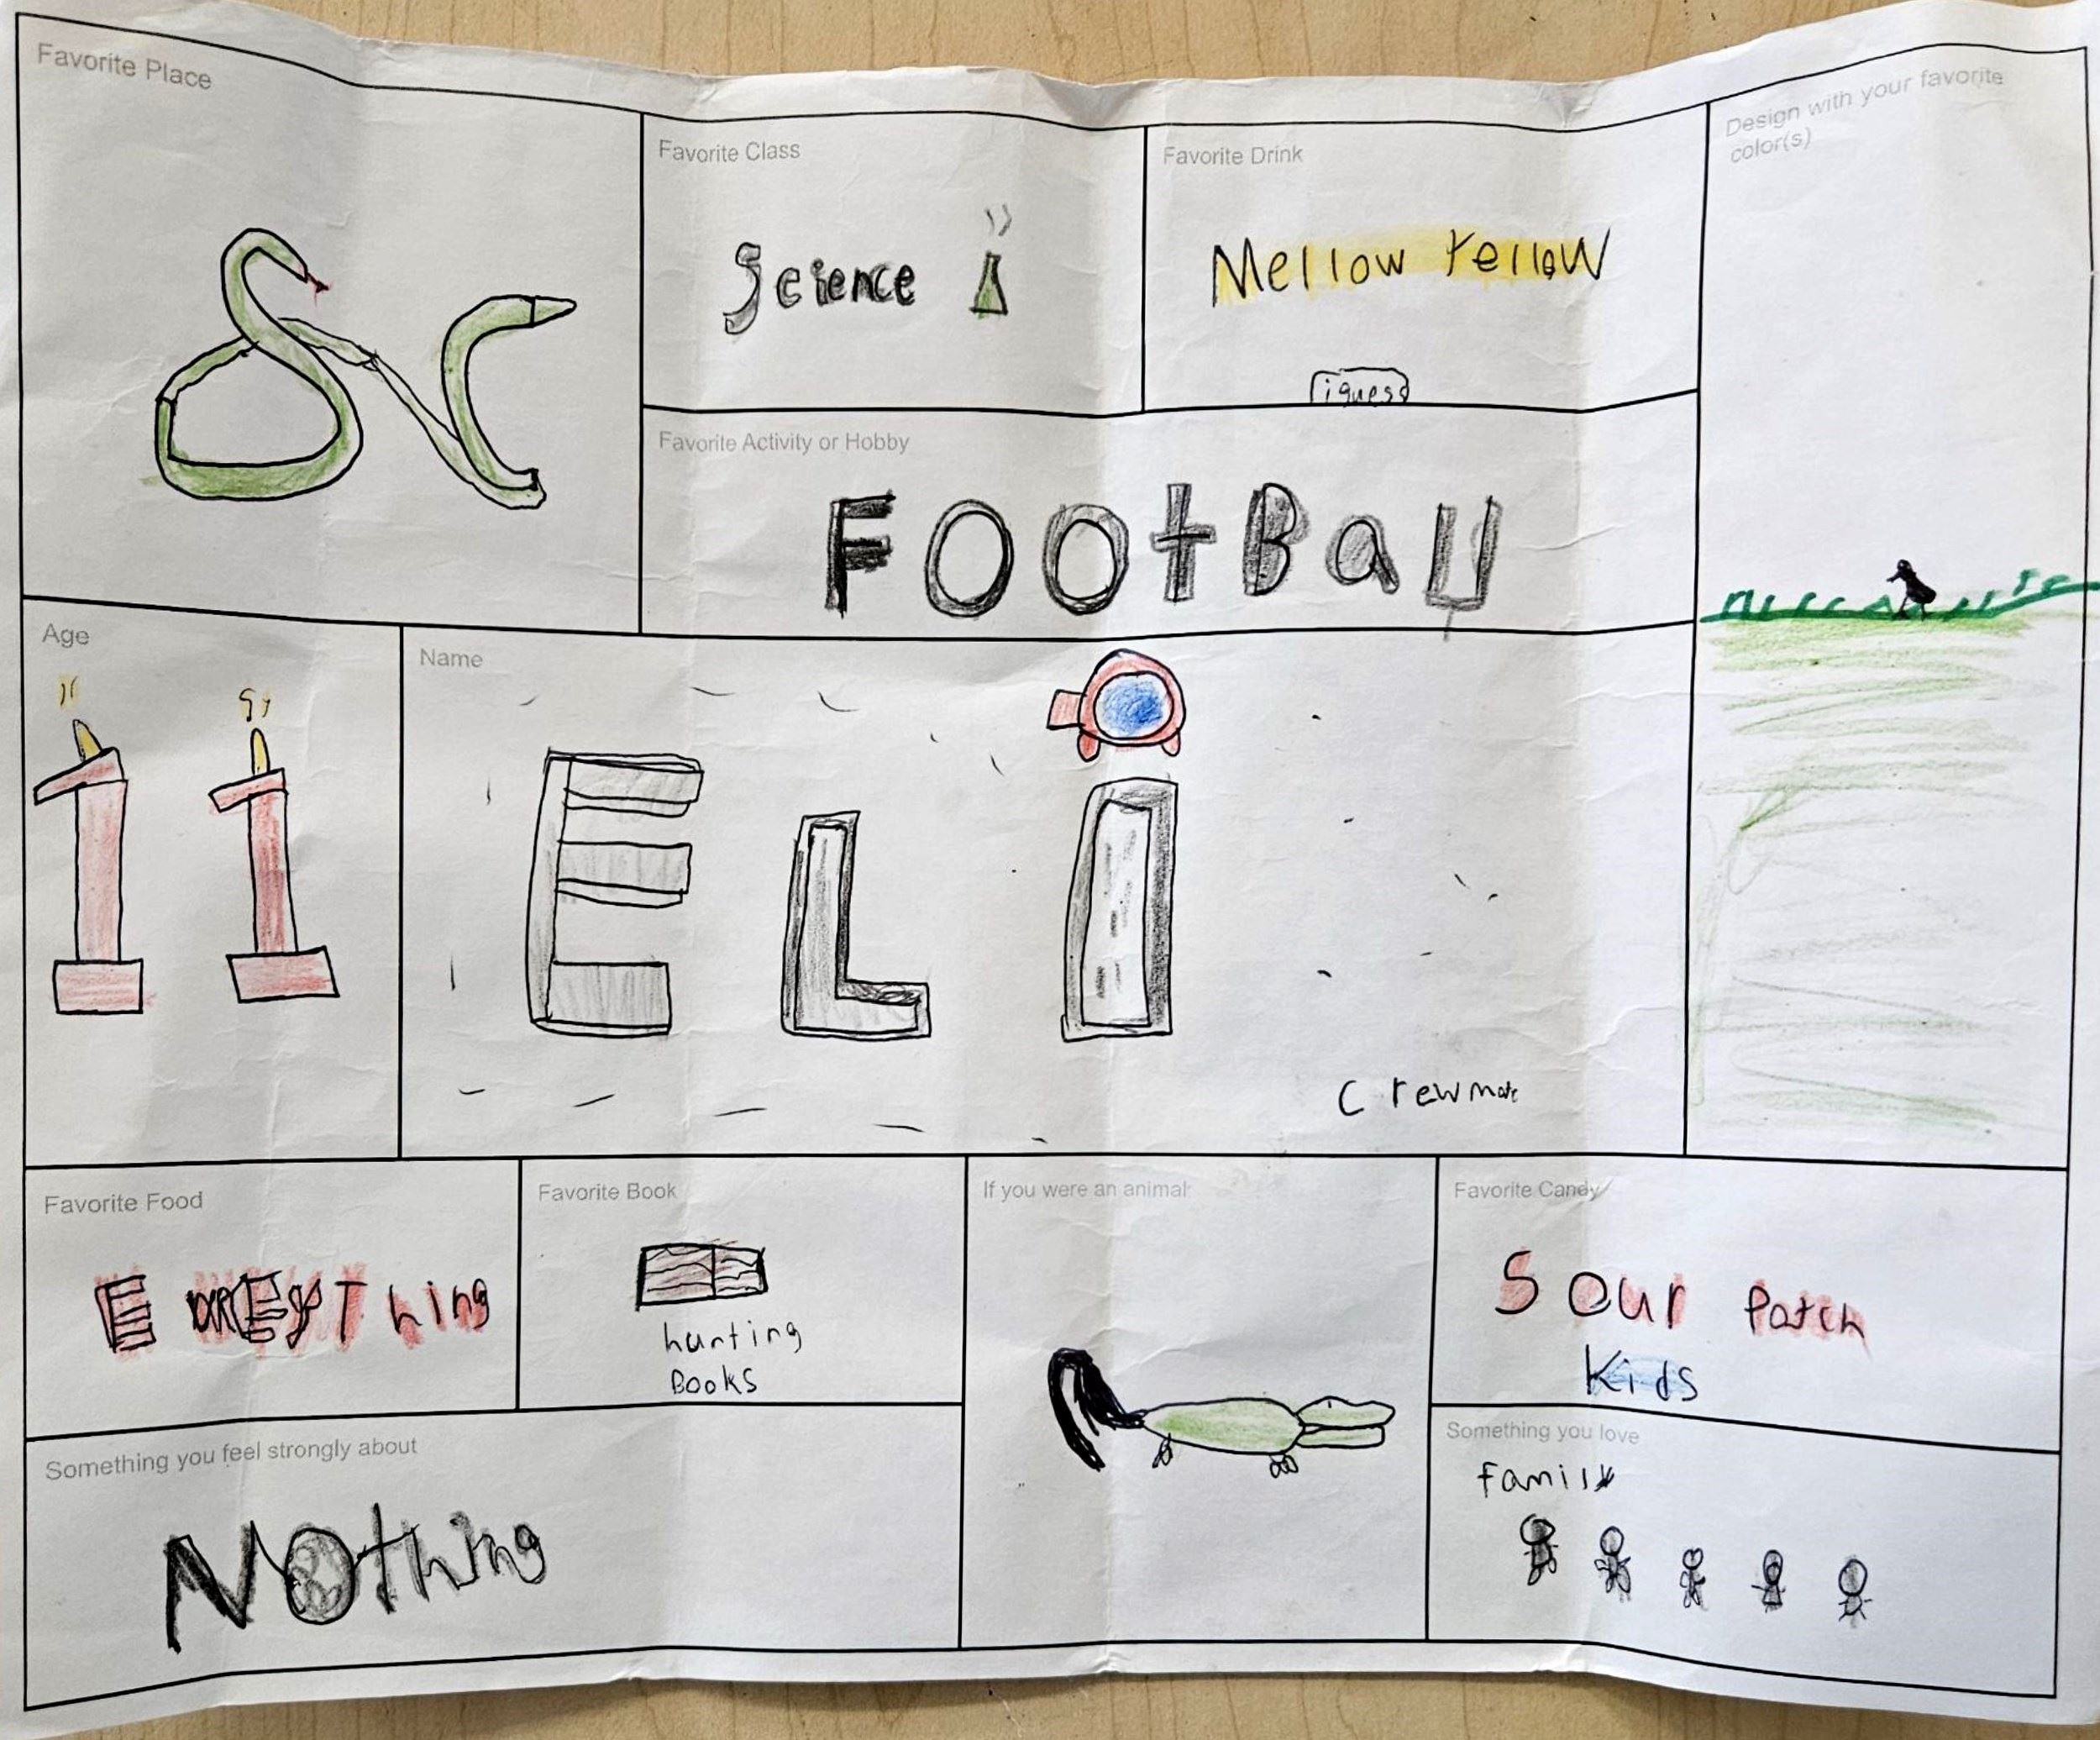 Favorite Place
SC
Favorite Class
Science
Favorite Drink
Mellow Yellow
iguess
Design with your favorite
color(s)
Favorite Activity or Hobby
FOOtBall
Age
11
Name
ELi
Crewmate
Favorite Food
EVREyThing
Favorite Book
hunting
BOOKS
If you were an animal
Favorite Candy
Sour Patch
Kids
Something you feel strongly about
NOthing
Something you love
family